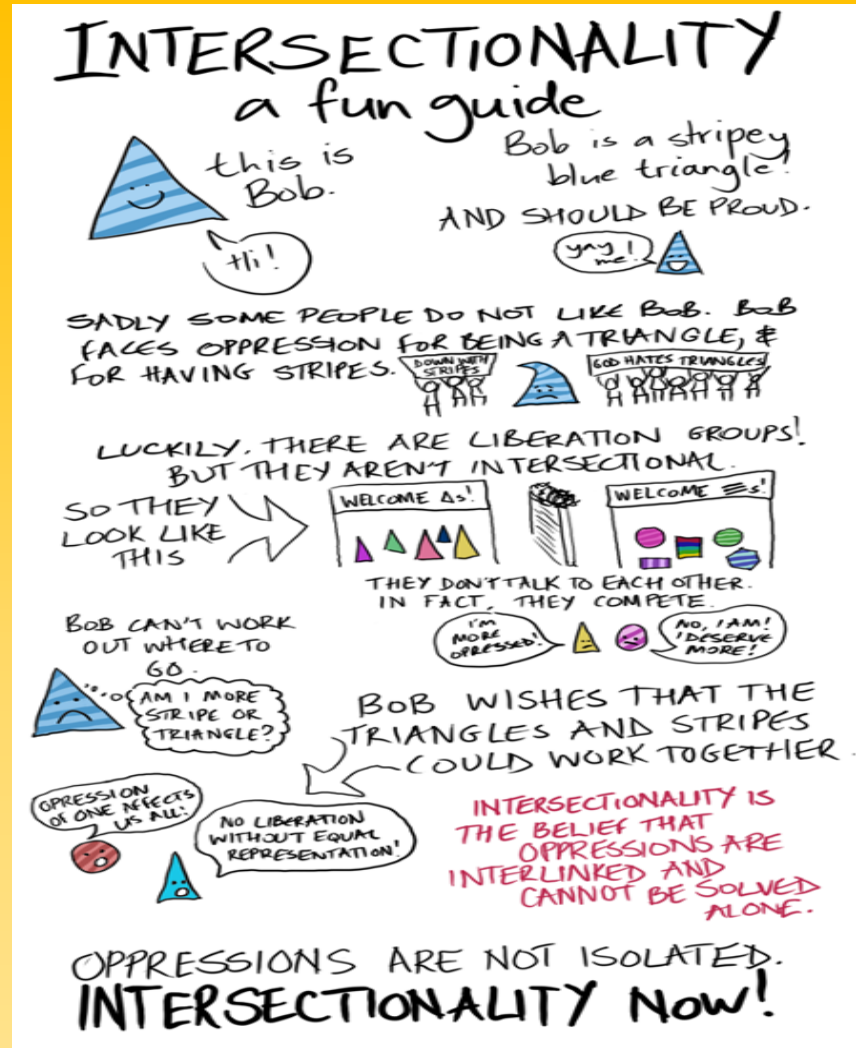 INTERSECTIONALITY
a fun guide
this is
Bob.
Hi!
Bob is a stripey
blue triangle!
AND SHOULD BE PROUD.
yay
me!
SADLY SOME PEOPLE DO NOT LIKE BOB. BOB
FACES OPPRESSION FOR BEING A TRIANGLE, &
FOR HAVING STRIPES.
DOWN WITH
STRIPES
GOD HATES TRIANGLES
LUCKILY, THERE ARE LIBERATION GROUPS!
BUT THEY AREN'T INTERSECTIONAL.
SO THEY
LOOK LIKE
THIS
WELCOME Δs!
WELCOME ☰s!
THEY DON'T TALK TO EACH OTHER.
IN FACT, THEY COMPETE.
I'M
MORE
OPRESSED!
NO, I AM!
I DESERVE
MORE!
BOB CAN'T WORK
OUT WHERE TO
GO.
AM I MORE
STRIPE OR
TRIANGLE?
BOB WISHES THAT THE
TRIANGLES AND STRIPES
COULD WORK TOGETHER.
OPRESSION
OF ONE AFFECTS
US ALL!
NO LIBERATION
WITHOUT EQUAL
REPRESENTATION!
INTERSECTIONALITY IS
THE BELIEF THAT
OPPRESSIONS ARE
INTERLINKED AND
CANNOT BE SOLVED
ALONE.
OPPRESSIONS ARE NOT ISOLATED.
INTERSECTIONALITY NOW!